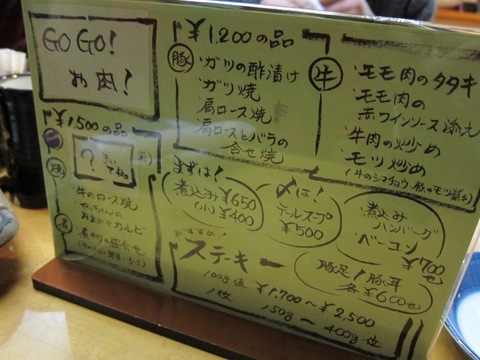 GO GO!
お肉!
¥1,200の品
豚
・ガツの酢漬け
・ガツ焼
・肩ロース焼
・肩ロースとバラの
合せ焼
牛
・モモ肉のタタキ
・モモ肉の
赤ワインソース添え
・牛肉の炒め
・モツ炒め
¥1,500の品
?
・牛のロース焼
おまかせカルビ
まずは!
煮込み¥650
(小)¥400
〆は!
テールスープ
¥500
・煮込み
ハンバーグ
・ベーコン
¥700
おすすめ!
ステーキ
100g値 ¥1,700〜¥2,500
1枚 150g〜400g
豚足!豚耳
各¥600